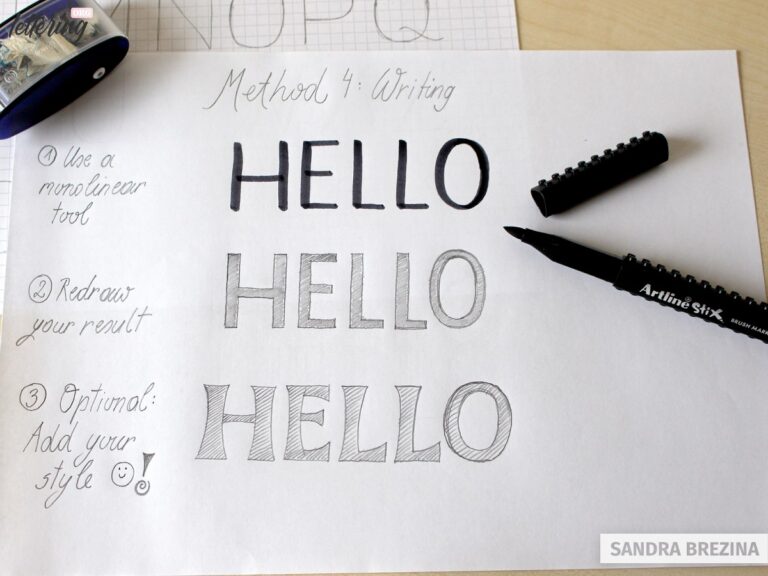 lettering
MNOPQ
Method 4: Writing
① Use a
monolinear
tool
HELLO
② Redraw
your result
HELLO
③ Optional:
Add your
style ☺!
HELLO
Artline Stix
BRUSH MARK
SANDRA BREZINA